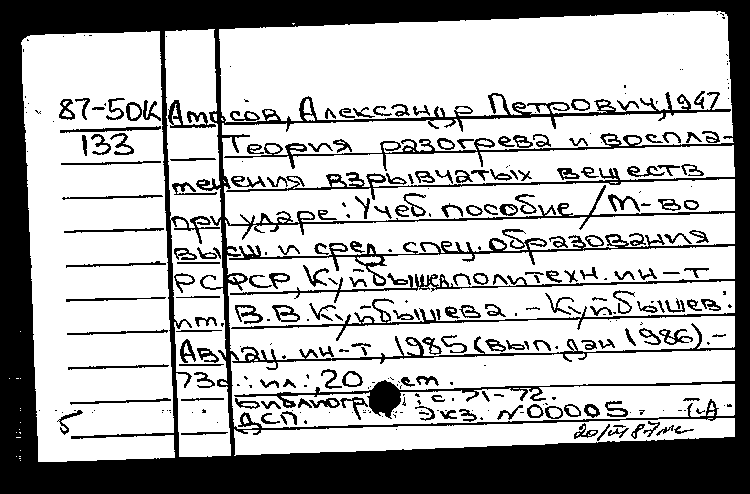 87-50К Амосов, Александр Петрович, 1947
133 Теория разогрева и воспла-
менения взрывчатых веществ
при ударе: Учеб. пособие / М-во
высш. и сред. спец. образования
РСФСР, Куйбышев. политехн. ин-т
им. В.В. Куйбышева. - Куйбышев:
Авиац. ин-т, 1985 (вып. дан 1986). -
73с.: ил.; 20 см.
Библиогр.: с. 71-72.
б ДСП. Экз. N00005. Т-Д
20/ 87